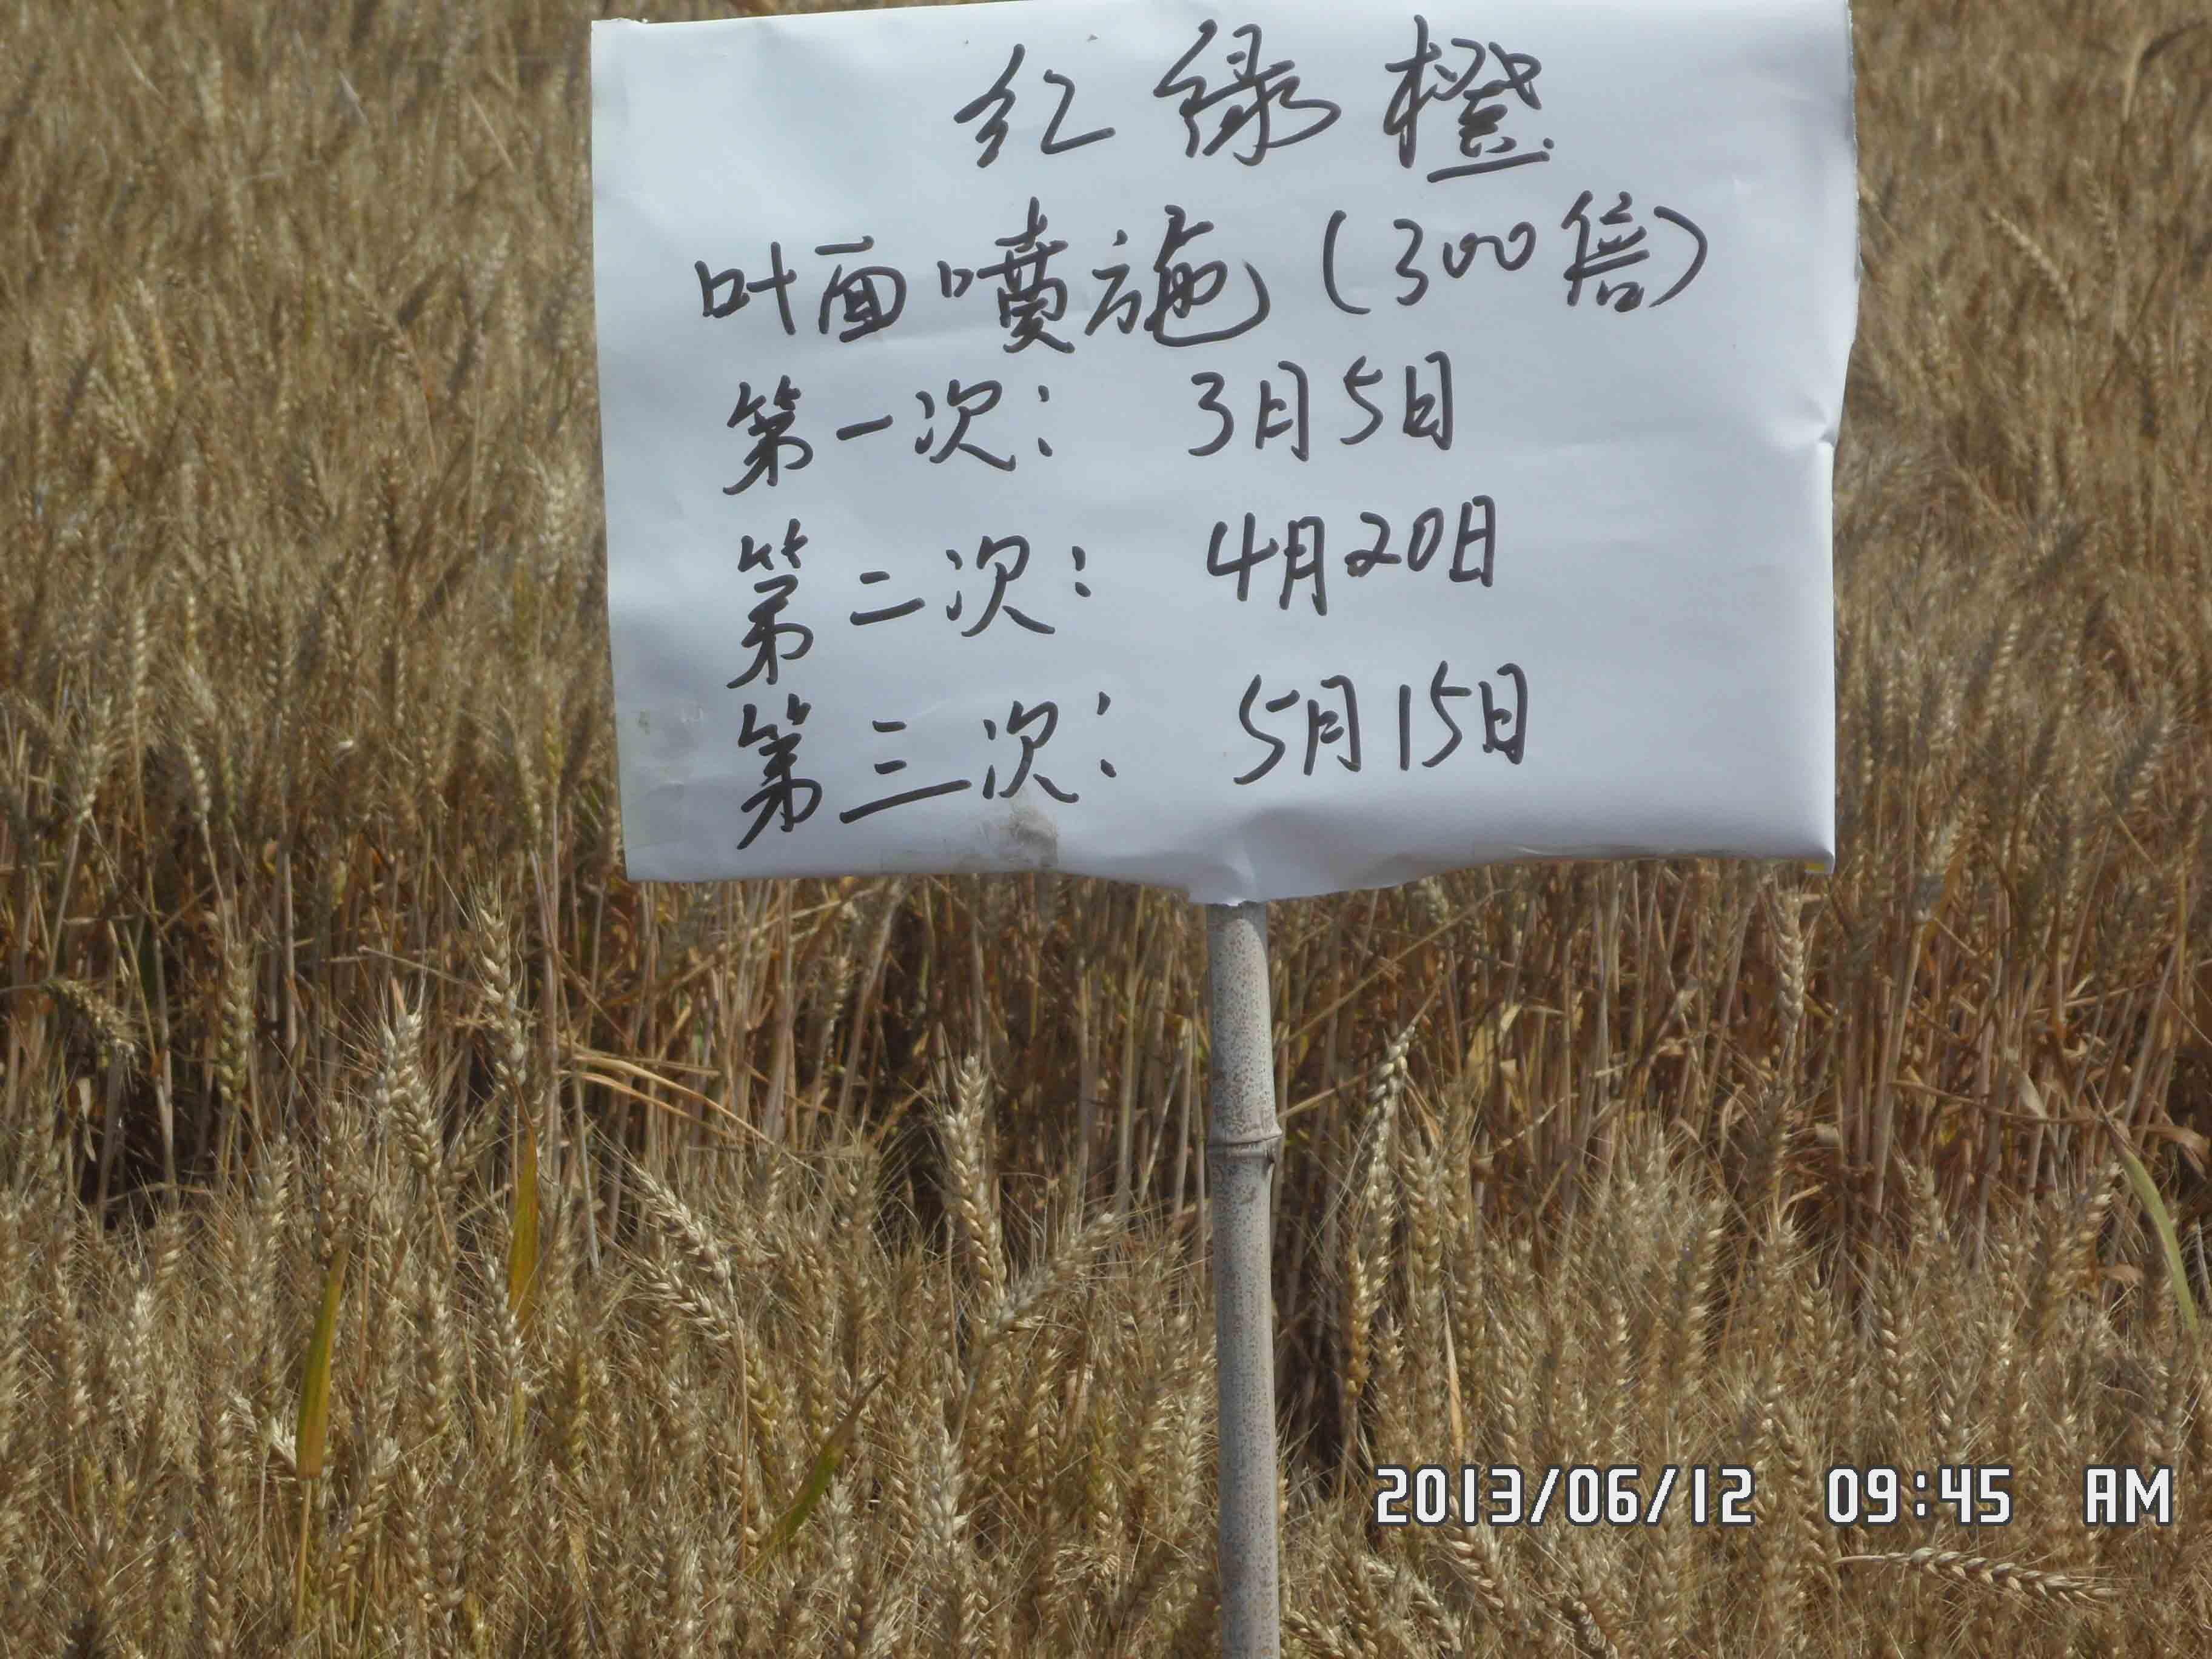 红绿橙
叶面喷施(300倍)
第一次: 3月5日
第二次: 4月20日
第三次: 5月15日
2013/06/12 09:45 AM